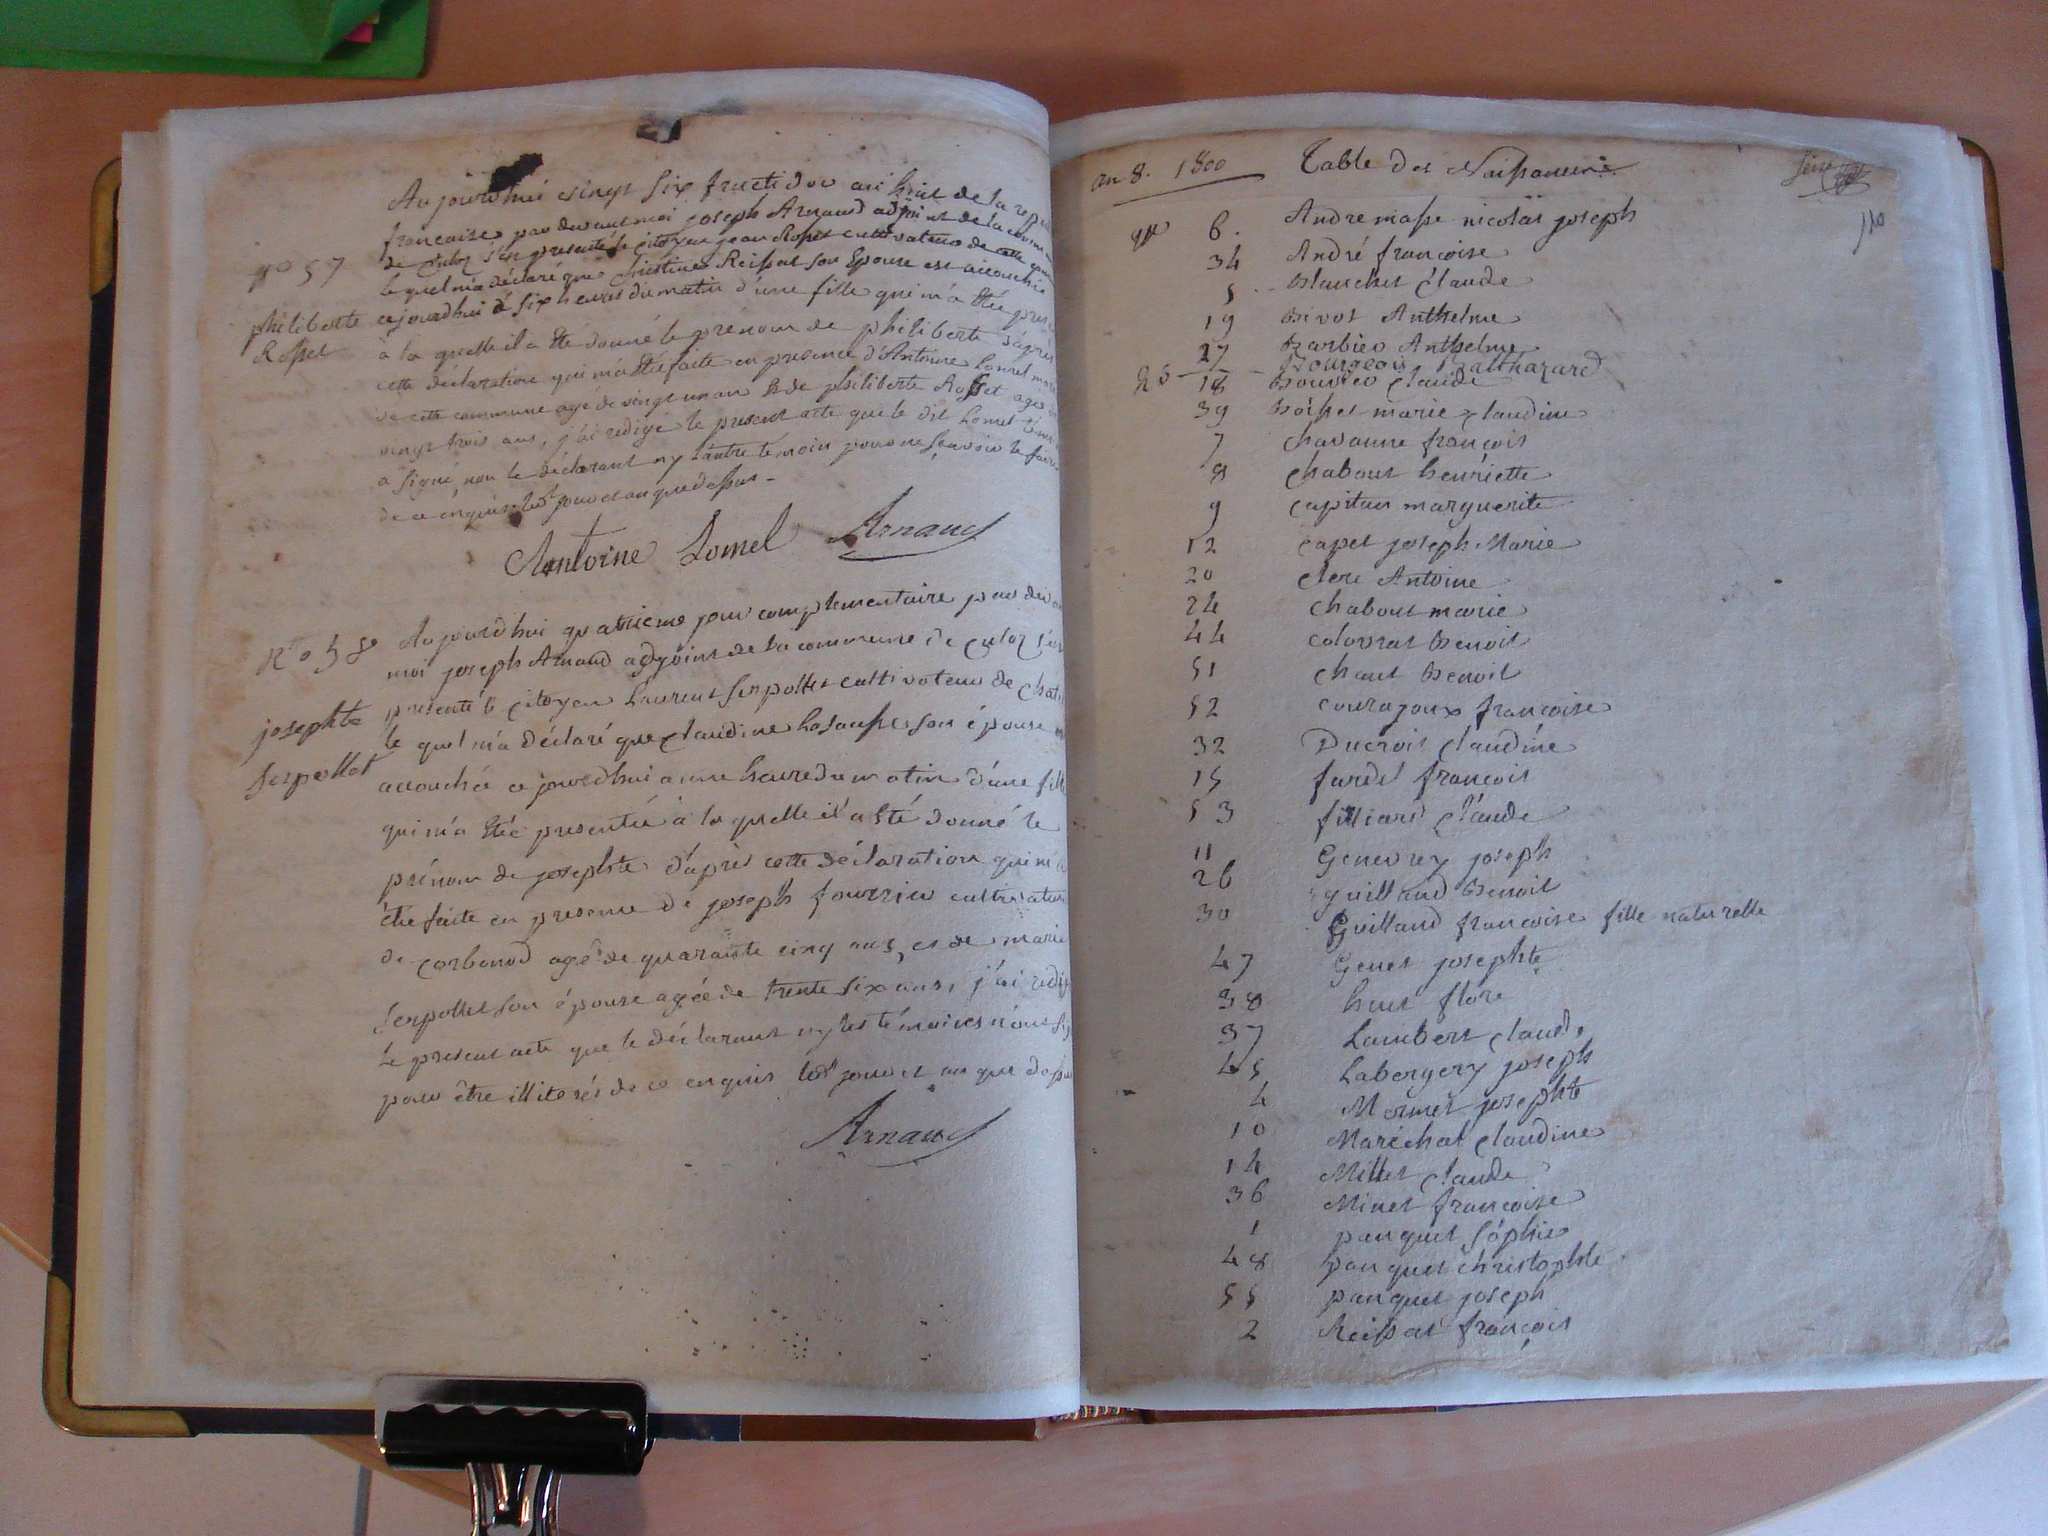 Aujourdhui vingt six fructidor an huit de la
francaise par devant moi joseph Arnaud adjoint de la
de Culoz s'est presenté le citoyen jean Rosset cultivateur de cette
N° 57
le quel m'a déclaré que Reissat son épouse est accouchée
philiberte
Rosset
cejourdhui à six heures du matin d'une fille qui m'a été
à la quelle il a été donné le prénom de philiberte d'après
cette déclaration qui m'a été faite en presence d'Antoine Lomel
de cette commune agé de vingt un an et de philiberte Rosset agée
vingt trois ans, j'ai redigé le present acte que le dit Lomel
a signé non le déclarant ny l'autre témoin pour ne sçavoir le faire
de ce enquis les jour et an que dessus -
Antoine Lomel Arnaud
N° 58
Aujourdhui quatrieme jour complementaire par
moi joseph Arnaud adjoint de la commune de Culoz
presenté le citoyen Laurent Serpollet cultivateur de
josephte
Serpollet
le quel m'a déclaré que claudine son épouse
accouchée cejourdhui a une heure du matin d'une fille
qui m'a été presentée à la quelle il a été donné le
prénom de josephte d'après cette déclaration qui m'a
été faite en presence de joseph fourrier cultivateur
de corbonod agé de quarante cinq ans, et de marie
Serpollet son épouse agée de trente six ans, j'ai
le present acte que le déclarant ny les témoins n'ont
pour être illiterés de ce enquis les jour et an que
Arnaud
an 8. 1800 Table des Naissances
110
6. André masse nicolas joseph
34 André francoise
5 Blanchet Claude
19 Bivot Anthelme
27 Barbier Anthelme
25 Bourgeois Balthazard
18 Bouvier Claude
39 Boisset marie claudine
7 Chavanne françois
8 Chabout henriette
9 Capitan marguerite
12 Capet joseph Marie
20 Clerc Antoine
24 Chabout marie
44 Colovrat Benoit
51 Chaut Benoit
52 Courajoux francoise
32 Ducroit Claudine
15 fardel françois
53 filliard Claude
11 Genevrey joseph
26 guilland Benoit
30 Guilland francoise fille naturelle
47 Genet josephte
38 huet flore
37 Lambert Claude
45 Labergery joseph
4 Mermet josephte
10 Maréchal Claudine
14 Millet Claude
36 Minet francoise
1 panquet Sophie
48 panquet christophle
55 panquet joseph
2 Reissat françois